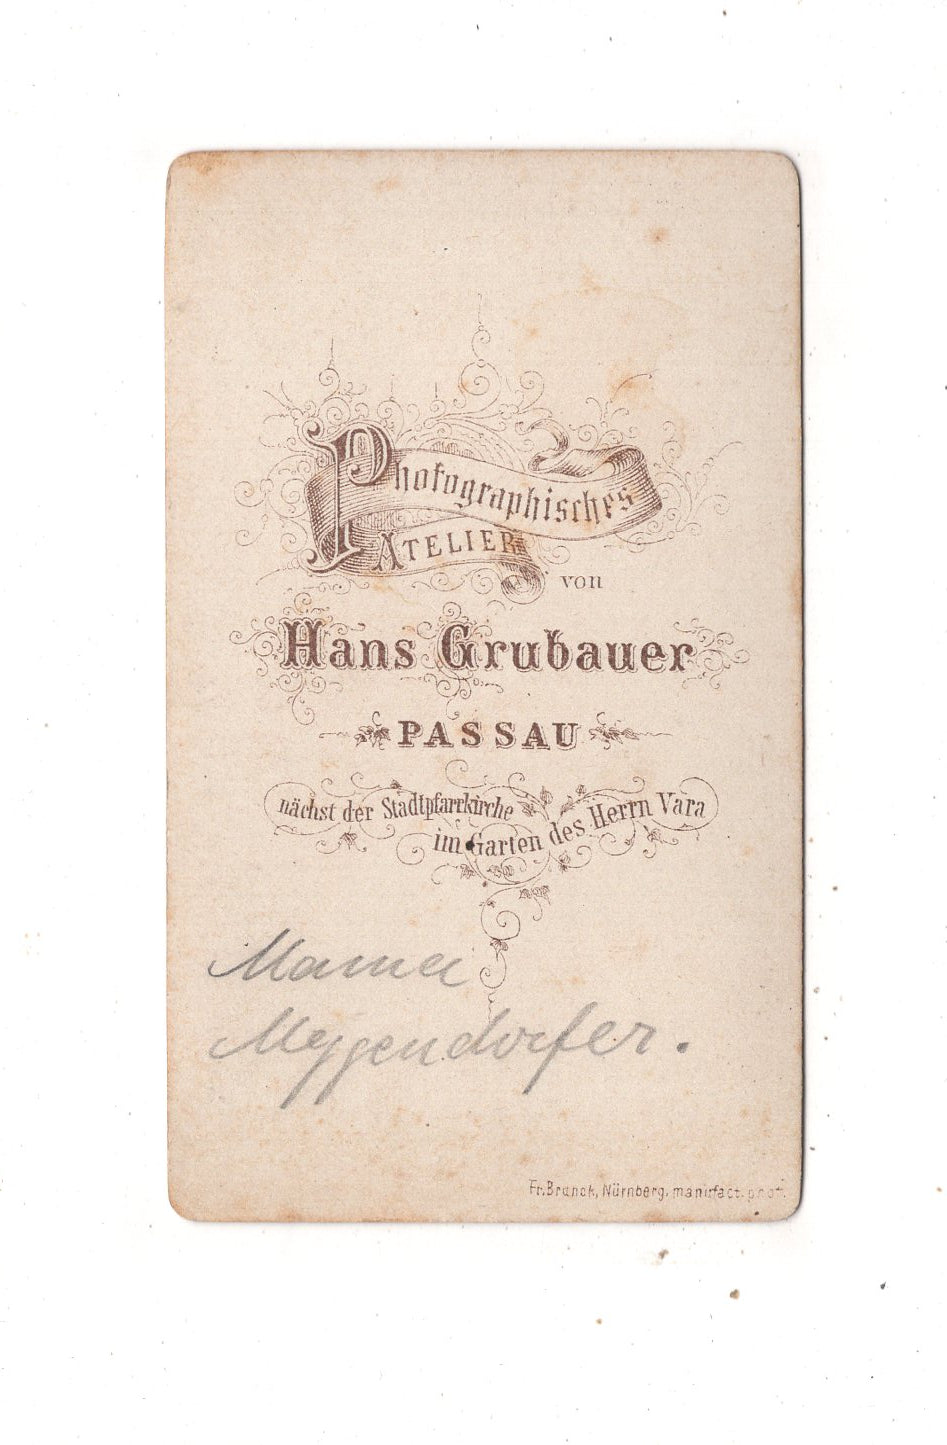 Photographisches
ATELIER
von
Hans Grubauer
PASSAU
nächst der Stadtpfarrkirche
im Garten des Herrn Vara
Mama
Meggendorfer.
Fr. Branck, Nürnberg, manufact. phot.